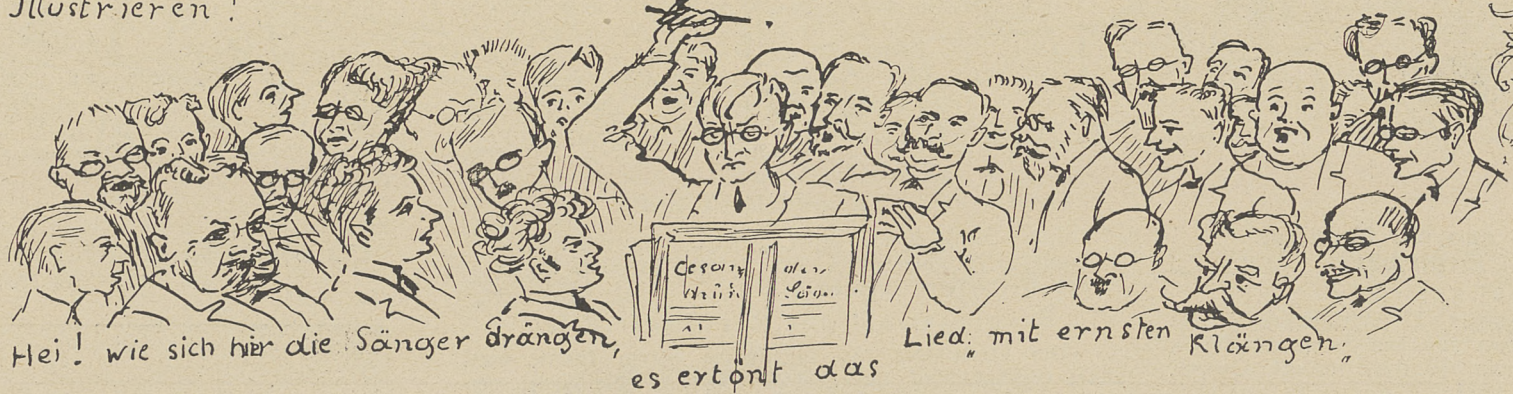 Illustrieren!
Gesang
Hei! wie sich hier die Sänger drängen,
es ertönt das
Lied: „mit ernsten Klängen."